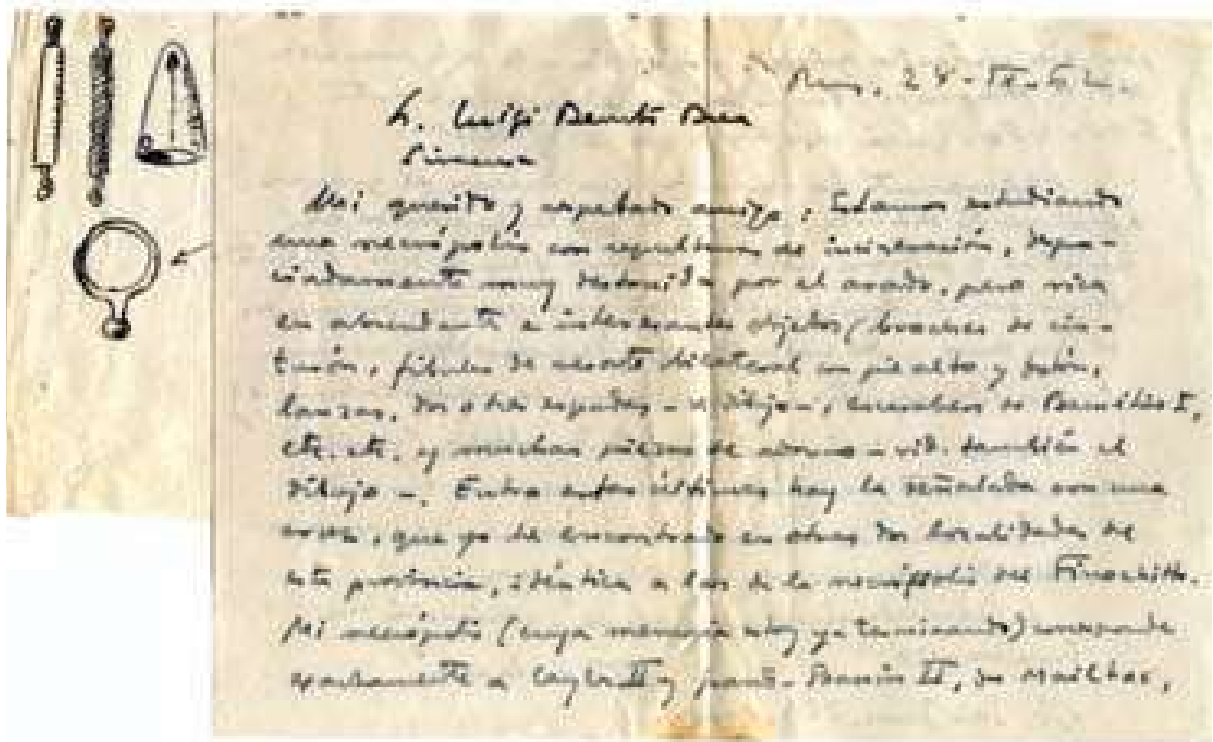 28-IX-62.
Sr. Luigi Bernabó Brea
Siracusa
Mi querido y respetado amigo: Estamos estudiando
una necrópolis con sepulturas de incineración, desgra-
ciadamente muy destruida por el arado, pero rica
en abundantes e interesantes objetos (broches de cin-
turón, fíbulas de resorte bilateral con pie alto y botón,
lanzas, dos o tres espadas - v. dibujo -, de
etc. etc. y muchas piezas de adorno - vid. también el
dibujo -. Entre estas últimas hay la señalada con una
que yo he encontrado en otras dos localidades de
esta provincia, idéntica a las de la necrópolis del Finocchito.
Mi necrópolis (cuya memoria estoy ya terminando) corresponde
exactamente a Cayla II y Grand-Bassin II, de Mailhac,